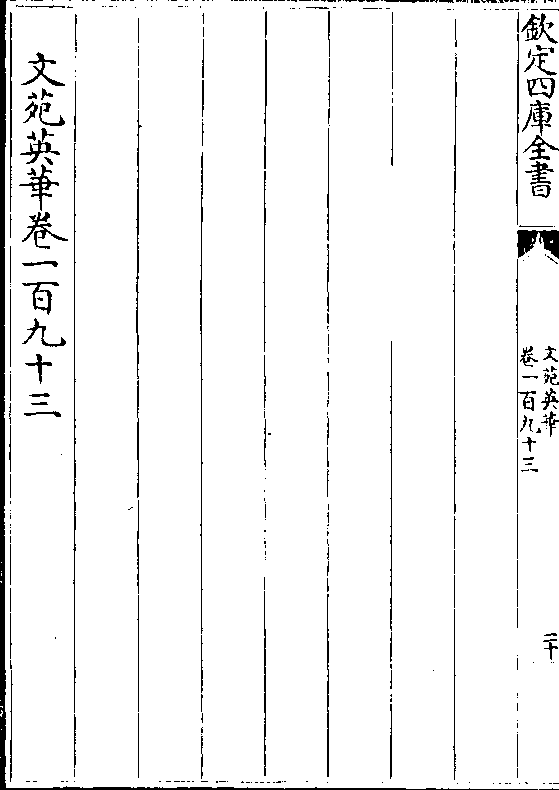 欽定四庫全書
文苑英華
卷一百九十三
二十
文苑英華卷一百九十三